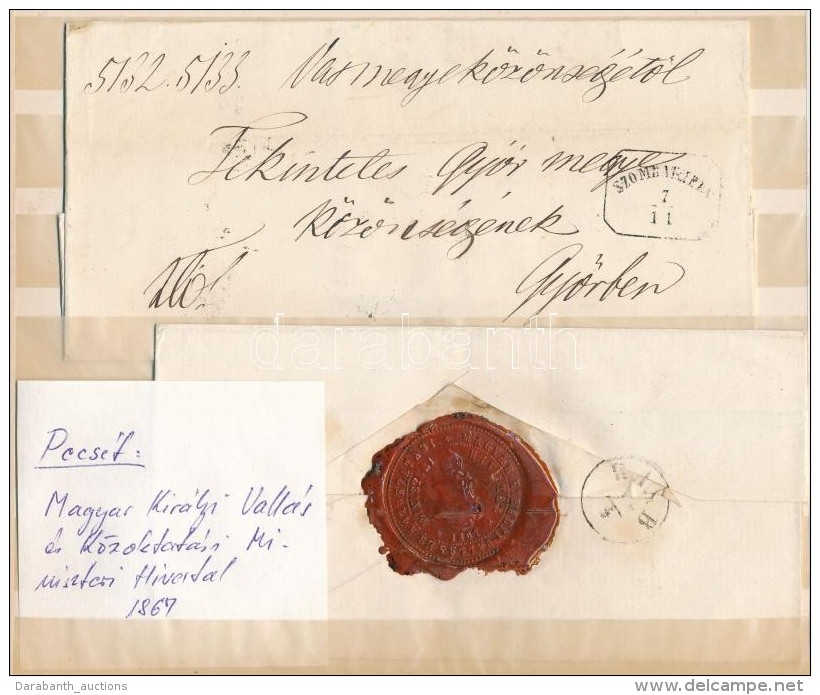 5132. 5133. Vasmegye közönségétől
Tekintetes Győr megye
közönségének
Győrben
SZOMBATHELY
7
11
darabanth
Pecsét:
Magyar Királyi Vallás
és Közoktatási Mi-
niszteri Hivatal
1867
Darabanth_auctions
www.delcampe.net